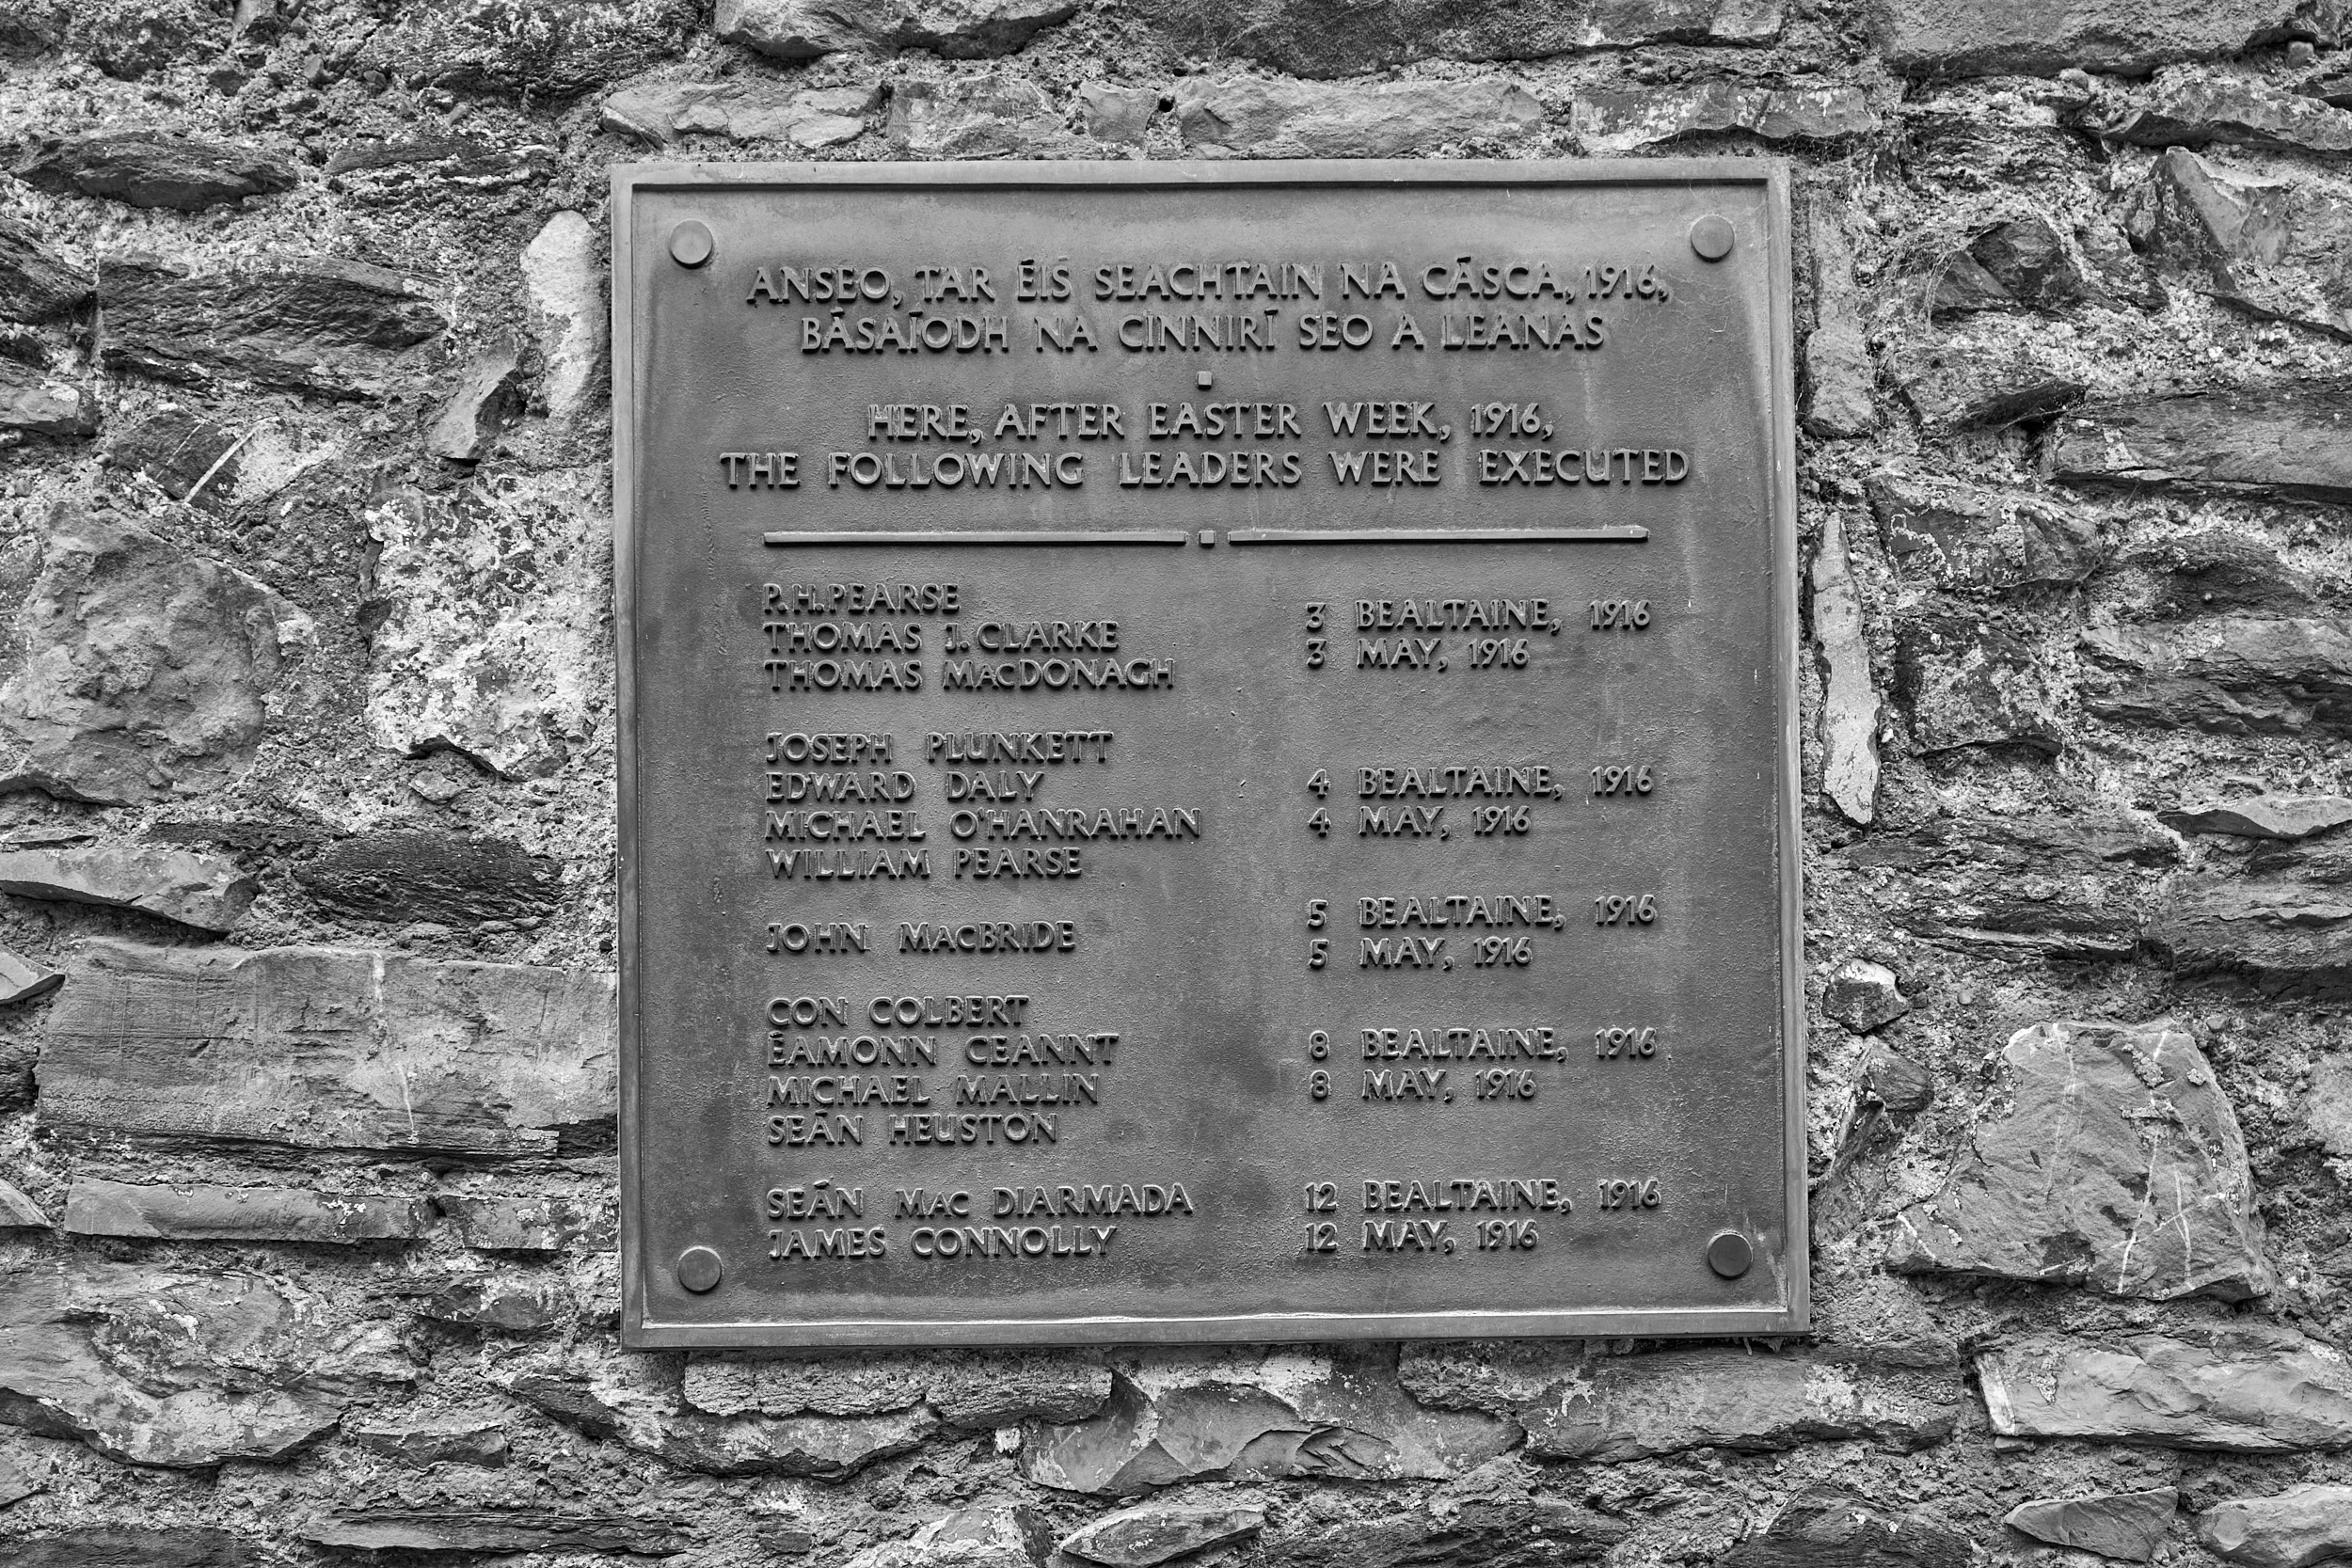 ANSEO, TAR ÉIS SEACHTAIN NA CÁSCA, 1916,
BÁSAÍODH NA CINNIRÍ SEO A LEANAS
HERE, AFTER EASTER WEEK, 1916,
THE FOLLOWING LEADERS WERE EXECUTED
P.H. PEARSE
THOMAS J. CLARKE
THOMAS MACDONAGH
3 BEALTAINE, 1916
3 MAY, 1916
JOSEPH PLUNKETT
EDWARD DALY
MICHAEL O'HANRAHAN
WILLIAM PEARSE
4 BEALTAINE, 1916
4 MAY, 1916
JOHN MACBRIDE
5 BEALTAINE, 1916
5 MAY, 1916
CON COLBERT
ÉAMONN CEANNT
MICHAEL MALLIN
SEÁN HEUSTON
8 BEALTAINE, 1916
8 MAY, 1916
SEÁN MAC DIARMADA
JAMES CONNOLLY
12 BEALTAINE, 1916
12 MAY, 1916